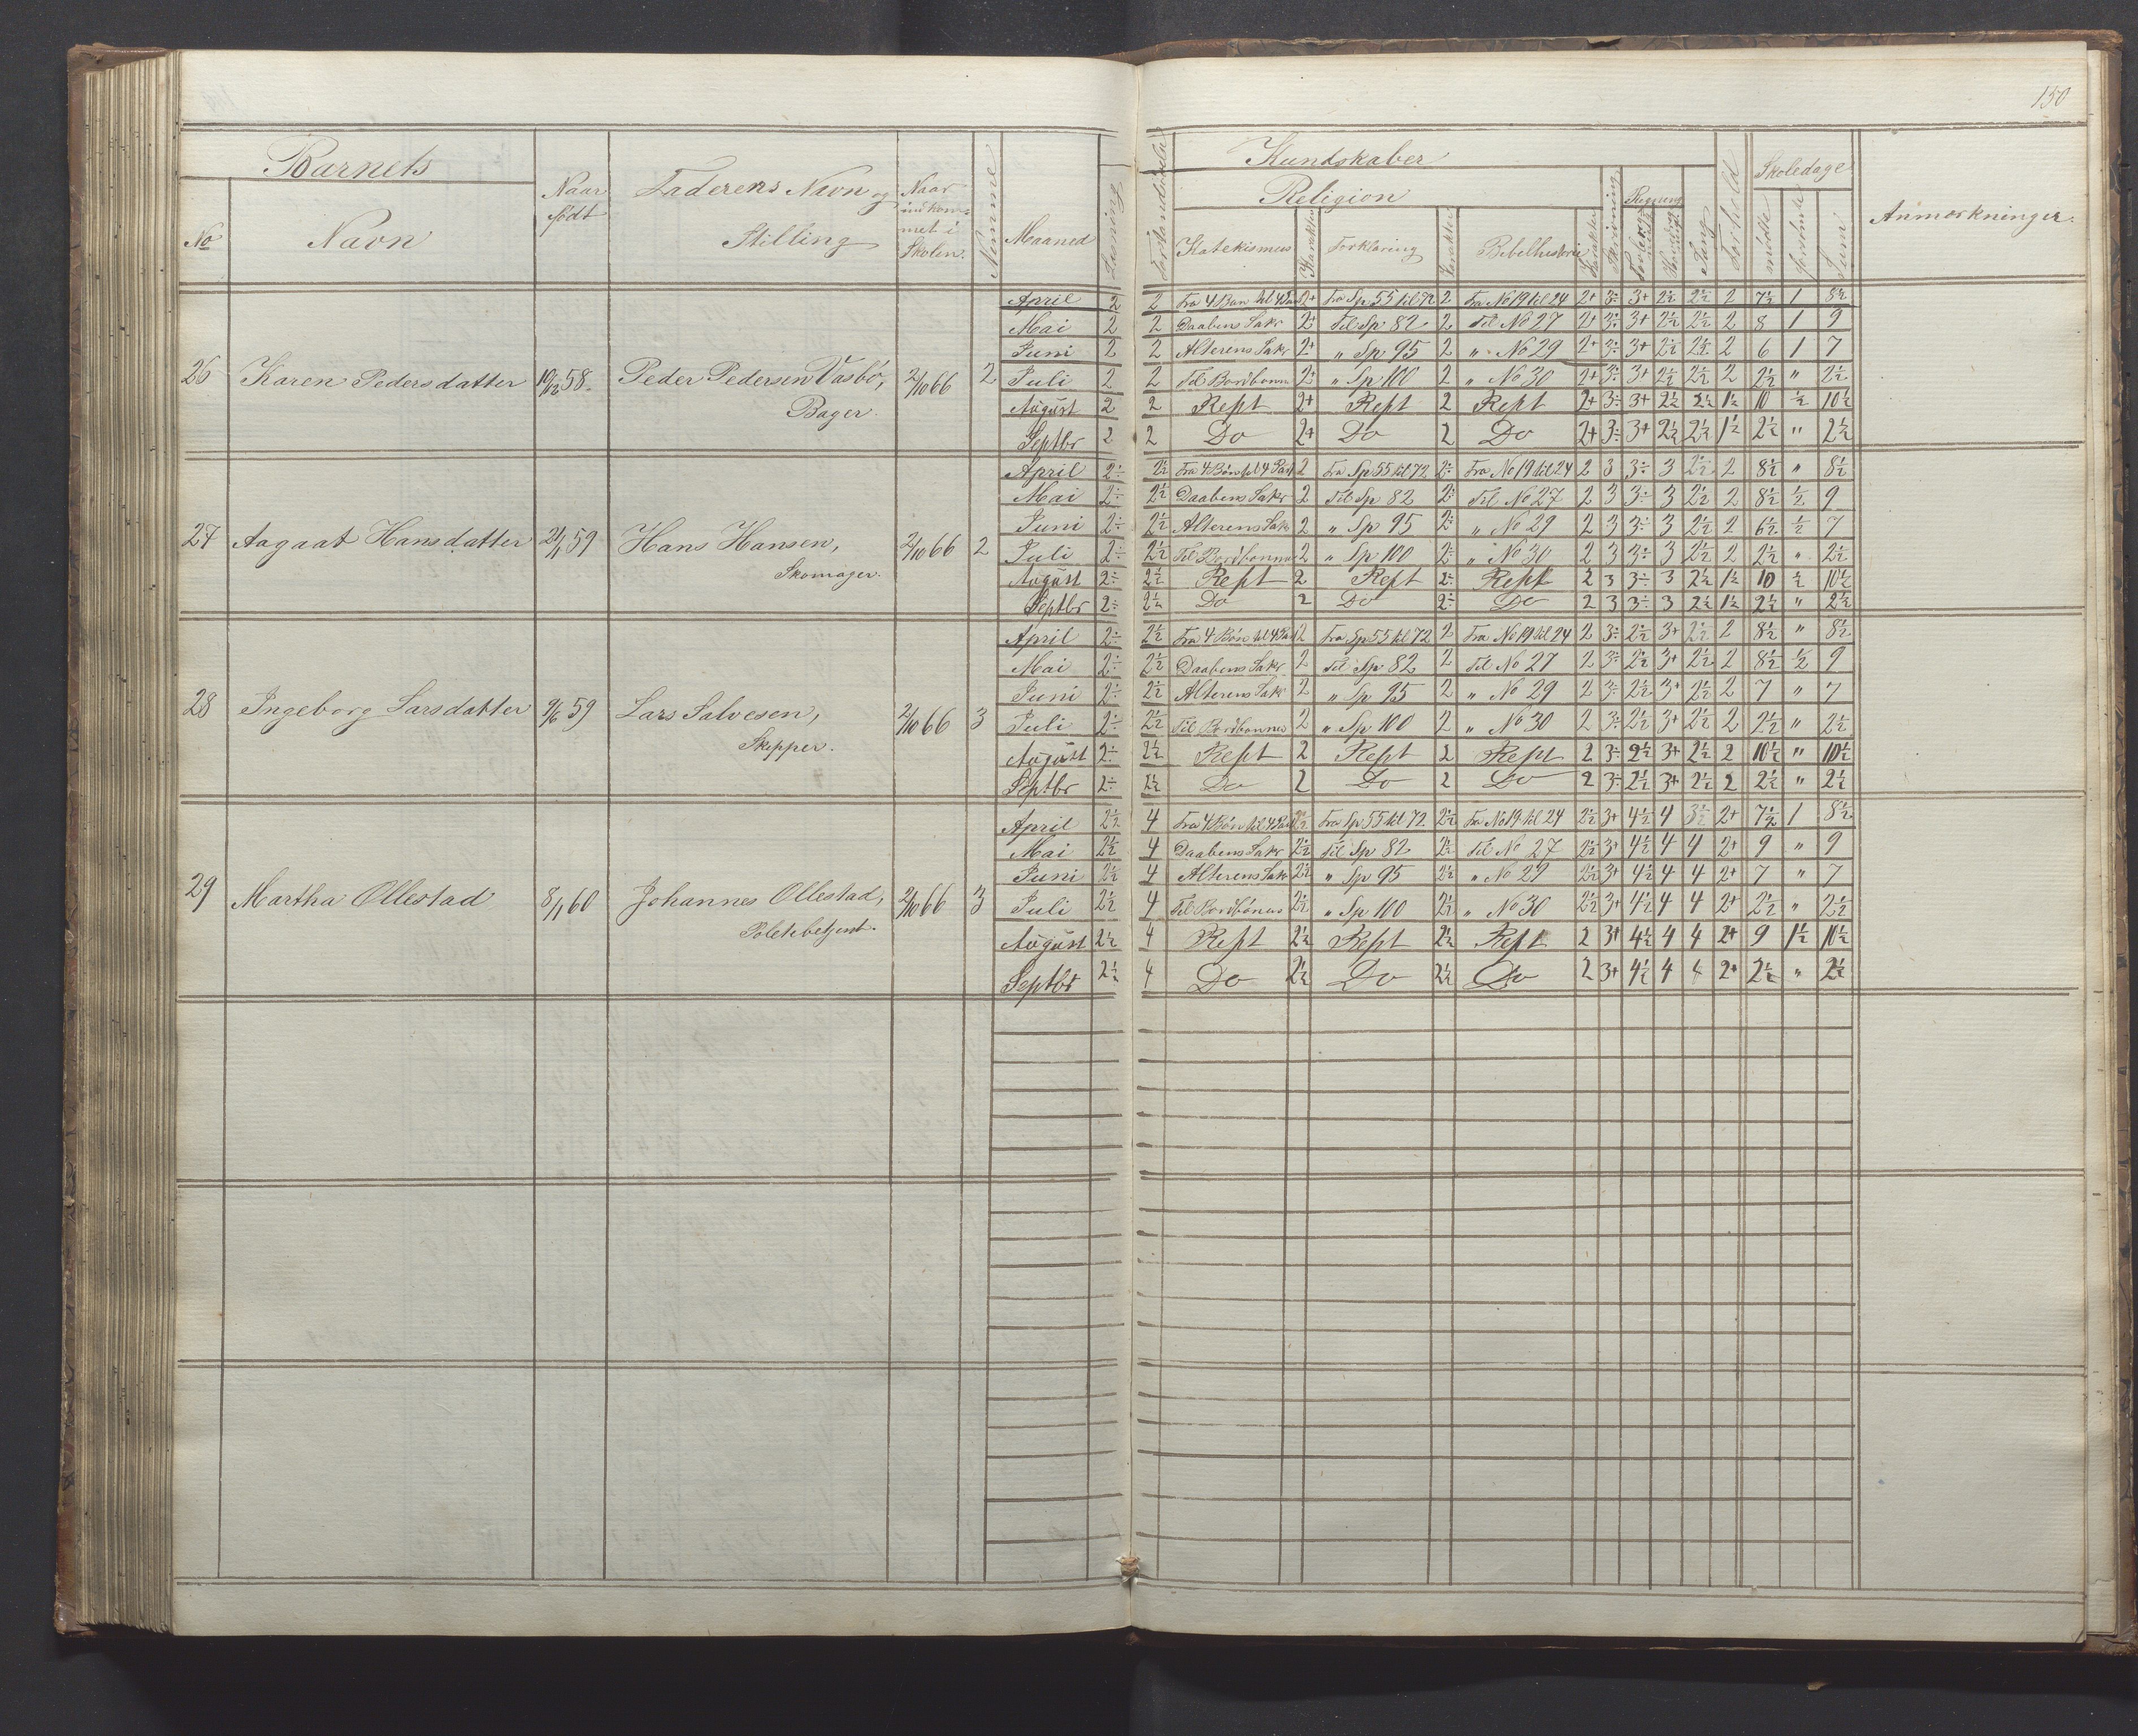 150
Barnets
Naar født
Faderens Navn og Stilling
Naar indkom= met i Skolen.
Nummer
Maaned
Læsning
Forstandsøvelse
Kundskaber
Religion
Skrivning
Regning
Sang
Forhold
Skoledage
Anmærkninger.
No
Navn
Katekismus
Karakter
Forklaring
Karakter
Bibelhistorie
Karakter
mødte
forsømte
Sum
26 Karen Pedersdatter 19/12 58. Peder Pedersen Vasbø, Bager. 2/10 66 2
April 2 2 Fra 4 Bøn til 4 Part 2+ Fra Sp 55 til 72 2 Fra No 19 til 24 2+ 3÷ 3+ 2½ 2½ 2 7½ 1 8½
Mai 2 2 Daabens Sakr 2+ Til Sp 82 2 Til No 27 2+ 3÷ 3+ 2½ 2½ 2 8 1 9
Juni 2 2 Alterens Sakr 2+ " Sp 95 2 " No 29 2+ 3÷ 3+ 2½ 2½ 2 6 1 7
Juli 2 2 Til Bordbønnen 2+ " Sp 100 2 " No 30 2+ 3÷ 3+ 2½ 2½ 2 2½ " 2½
August 2 2 Rept 2+ Rept 2 Rept 2+ 3÷ 3+ 2½ 2½ 1½ 10 ½ 10½
Septbr 2 2 Do 2+ Do 2 Do 2+ 3÷ 3+ 2½ 2½ 1½ 2½ " 2½
27 Aagaat Hansdatter 21/1 59 Hans Hansen, Skomager. 2/10 66 2
April 2÷ 2½ Fra 4 Bøn til 4 Part 2 Fra Sp 55 til 72 2÷ Fra No 19 til 24 2 3 3÷ 3 2½ 2 8½ " 8½
Mai 2÷ 2½ Daabens Sakr 2 Til Sp 82 2÷ Til No 27 2 3 3÷ 3 2½ 2 8½ ½ 9
Juni 2÷ 2½ Alterens Sakr 2 " Sp 95 2÷ " No 29 2 3 3÷ 3 2½ 2 6½ ½ 7
Juli 2÷ 2½ Til Bordbønnen 2 " Sp 100 2÷ " No 30 2 3 3÷ 3 2½ 2 2½ " 2½
August 2÷ 2½ Rept 2 Rept 2÷ Rept 2 3 3÷ 3 2½ 1½ 10 ½ 10½
Septbr 2÷ 2½ Do 2 Do 2÷ Do 2 3 3÷ 3 2½ 1½ 2½ " 2½
28 Ingeborg Larsdatter 9/6 59 Lars Salvesen, Skipper. 2/10 66 3
April 2÷ 2½ Fra 4 Bøn til 4 Part 2 Fra Sp 55 til 72 2 Fra No 19 til 24 2 3÷ 2½ 3+ 2½ 2 8½ " 8½
Mai 2÷ 2½ Daabens Sakr 2 Til Sp 82 2 Til No 27 2 3÷ 2½ 3+ 2½ 2 8½ ½ 9
Juni 2÷ 2½ Alterens Sakr 2 " Sp 95 2 " No 29 2 3÷ 2½ 3+ 2½ 2 7 " 7
Juli 2÷ 2½ Til Bordbønnen 2 " Sp 100 2 " No 30 2 3÷ 2½ 3+ 2½ 2 2½ " 2½
August 2÷ 2½ Rept 2 Rept 2 Rept 2 3÷ 2½ 3+ 2½ 2 10½ " 10½
Septbr 2÷ 2½ Do 2 Do 2 Do 2 3÷ 2½ 3+ 2½ 2 2½ " 2½
29 Martha Ollestad 8/1 60 Johannes Ollestad, Politibetjent. 2/10 66 3
April 2½ 4 Fra 4 Bøn til 4 Part 2½ Fra Sp 55 til 72 2½ Fra No 19 til 24 2½ 3+ 4½ 4 3½ 2+ 7½ 1 8½
Mai 2½ 4 Daabens Sakr 2½ Til Sp 82 2½ Til No 27 2½ 3+ 4½ 4 4 2+ 9 " 9
Juni 2½ 4 Alterens Sakr 2½ " Sp 95 2½ " No 29 2½ 3+ 4½ 4 4 2+ 7 " 7
Juli 2½ 4 Til Bordbønnen 2½ " Sp 100 2½ " No 30 2½ 3+ 4½ 4 4 2+ 2½ " 2½
August 2½ 4 Rept 2½ Rept 2½ Rept 2 3+ 4½ 4 4 2+ 9 1½ 10½
Septbr 2½ 4 Do 2½ Do 2½ Do 2 3+ 4½ 4 4 2+ 2½ " 2½